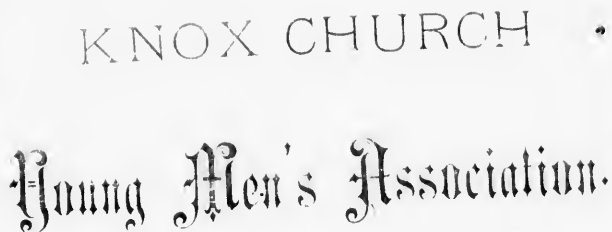 KNOX CHURCH
Young Men's Association.